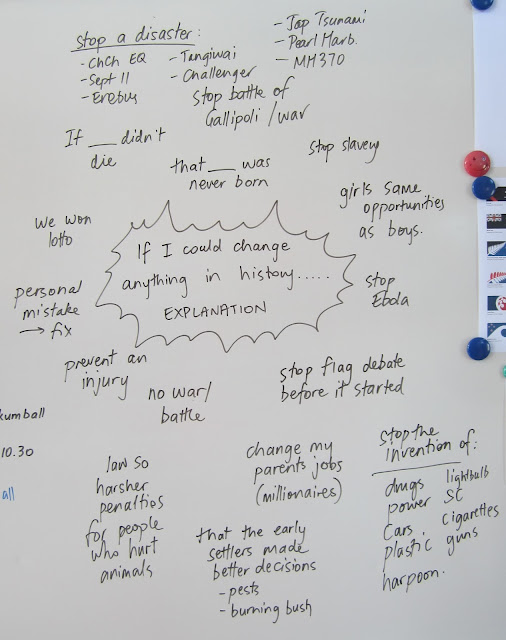 stop a disaster:
- ChCh EQ
- Sept 11
- Erebus
- Tangiwai
- Challenger
- Jap Tsunami
- Pearl Harb.
- MH370
Stop battle of
Gallipoli / war
If ___ didn't
die
that ___ was
never born
Stop slavery
girls same
opportunities
as boys.
We won
lotto
If I could change
anything in history.....
EXPLANATION
stop
Ebola
personal
mistake
→ fix
prevent an
injury
no war/
battle
stop flag debate
before it started
kumball
10.30
all
law so
harsher
penalties
for people
who hurt
animals
change my
parents jobs
(millionaires)
that the early
settlers made
better decisions
- pests
- burning bush
Stop the
invention of:
drugs lightbulb
power SC
cars cigarettes
plastic guns
harpoon.